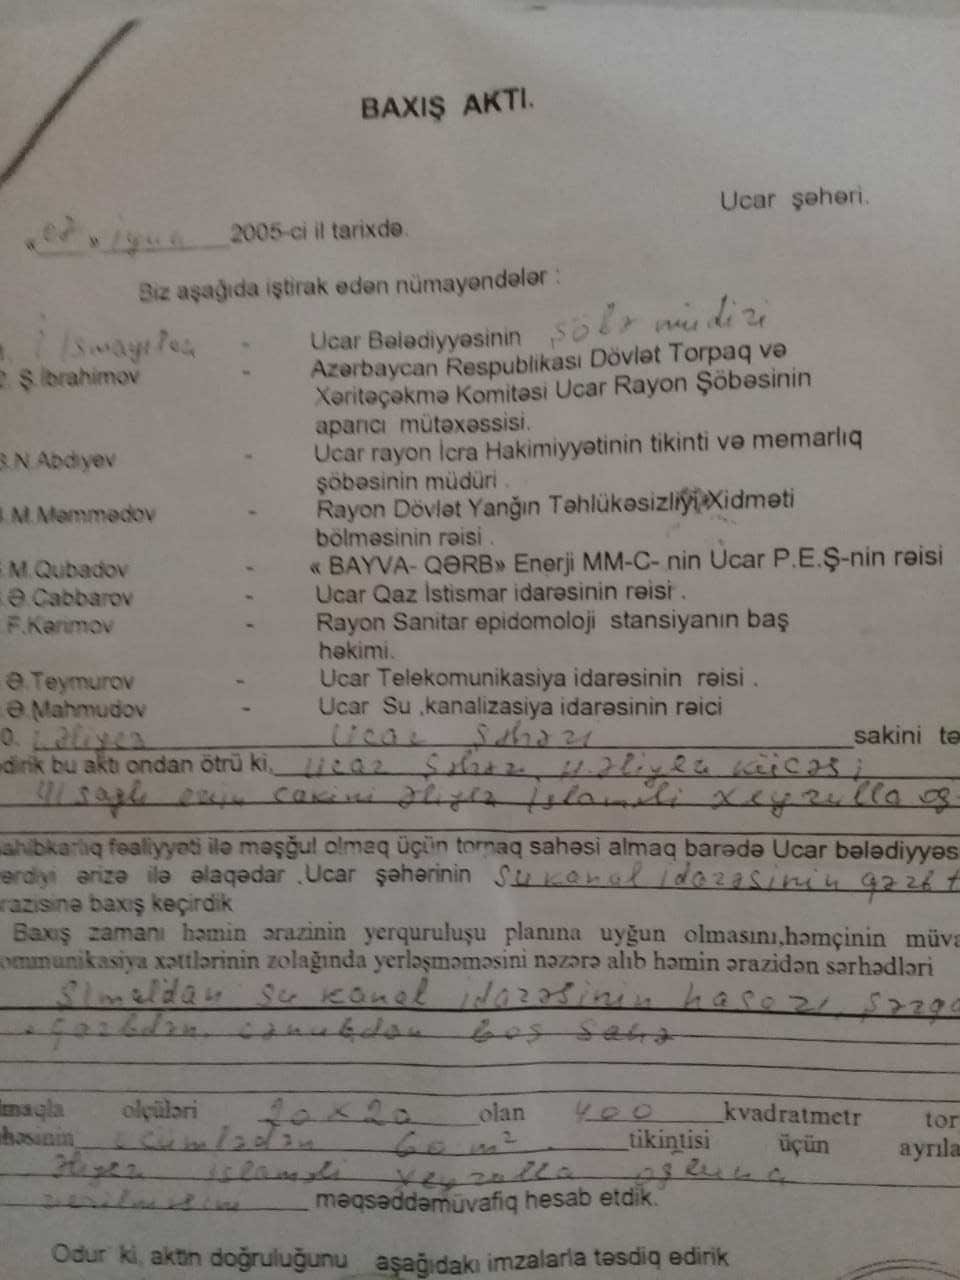 BAXIŞ AKTI.
Ucar şəhəri.
« » iyun 2005-ci il tarixdə.
Biz aşağıda iştirak edən nümayəndələr :
İsmayılov - Ucar Bələdiyyəsinin şöbə müdiri
Ş.İbrahimov - Azərbaycan Respublikası Dövlət Torpaq və
Xəritəçəkmə Komitəsi Ucar Rayon Şöbəsinin
aparıcı mütəxəssisi.
N.Abdıyev - Ucar rayon İcra Hakimiyyətinin tikinti və memarlıq
şöbəsinin müdüri .
M.Məmmədov - Rayon Dövlət Yanğın Təhlükəsizliyi Xidməti
bölməsinin rəisi .
M.Qubadov - « BAYVA- QƏRB» Enerji MM-C- nin Ucar P.E.Ş-nin rəisi
Ə.Cabbarov - Ucar Qaz İstismar idarəsinin rəisi .
F.Kərimov - Rayon Sanitar epidomoloji stansiyanın baş
həkimi.
Ə.Teymurov - Ucar Telekomunikasiya idarəsinin rəisi .
Ə.Mahmudov - Ucar Su ,kanalizasiya idarəsinin rəici
0. İ.Əliyev Ucar Şəhəri sakini tə
dirik bu aktı ondan ötrü ki, Ucar Şəhəri, H.Əliyev küçəsi
41 saylı evin sakini Əliyev İslaməli Xeyrulla oğ
ahibkarlıq fəaliyyəti ilə məşğul olmaq üçün torpaq sahəsi almaq barədə Ucar bələdiyyəs
erdiyi ərizə ilə əlaqədar .Ucar şəhərinin Su kanal idarəsinin qərb t
razisinə baxış keçirdik
Baxış zamanı həmin ərazinin yerquruluşu planına uyğun olmasını,həmçinin müva
ommunikasiya xəttlərinin zolağında yerləşməməsini nəzərə alıb həmin ərazidən sərhədləri
Şimaldan su kanal idarəsinin hasarı, şərqd
qərbdən, cənubdan boş sahə
lmaqla olçüləri 20x20 olan 400 kvadratmetr tor
həsinin o cümlədən 60 m² tikintisi üçün ayrıla
Əliyev İslaməli Xeyrulla oğluna
verilməsini məqsəddəmüvafiq hesab etdik.
Odur ki, aktın doğruluğunu aşağıdakı imzalarla təsdiq edirik